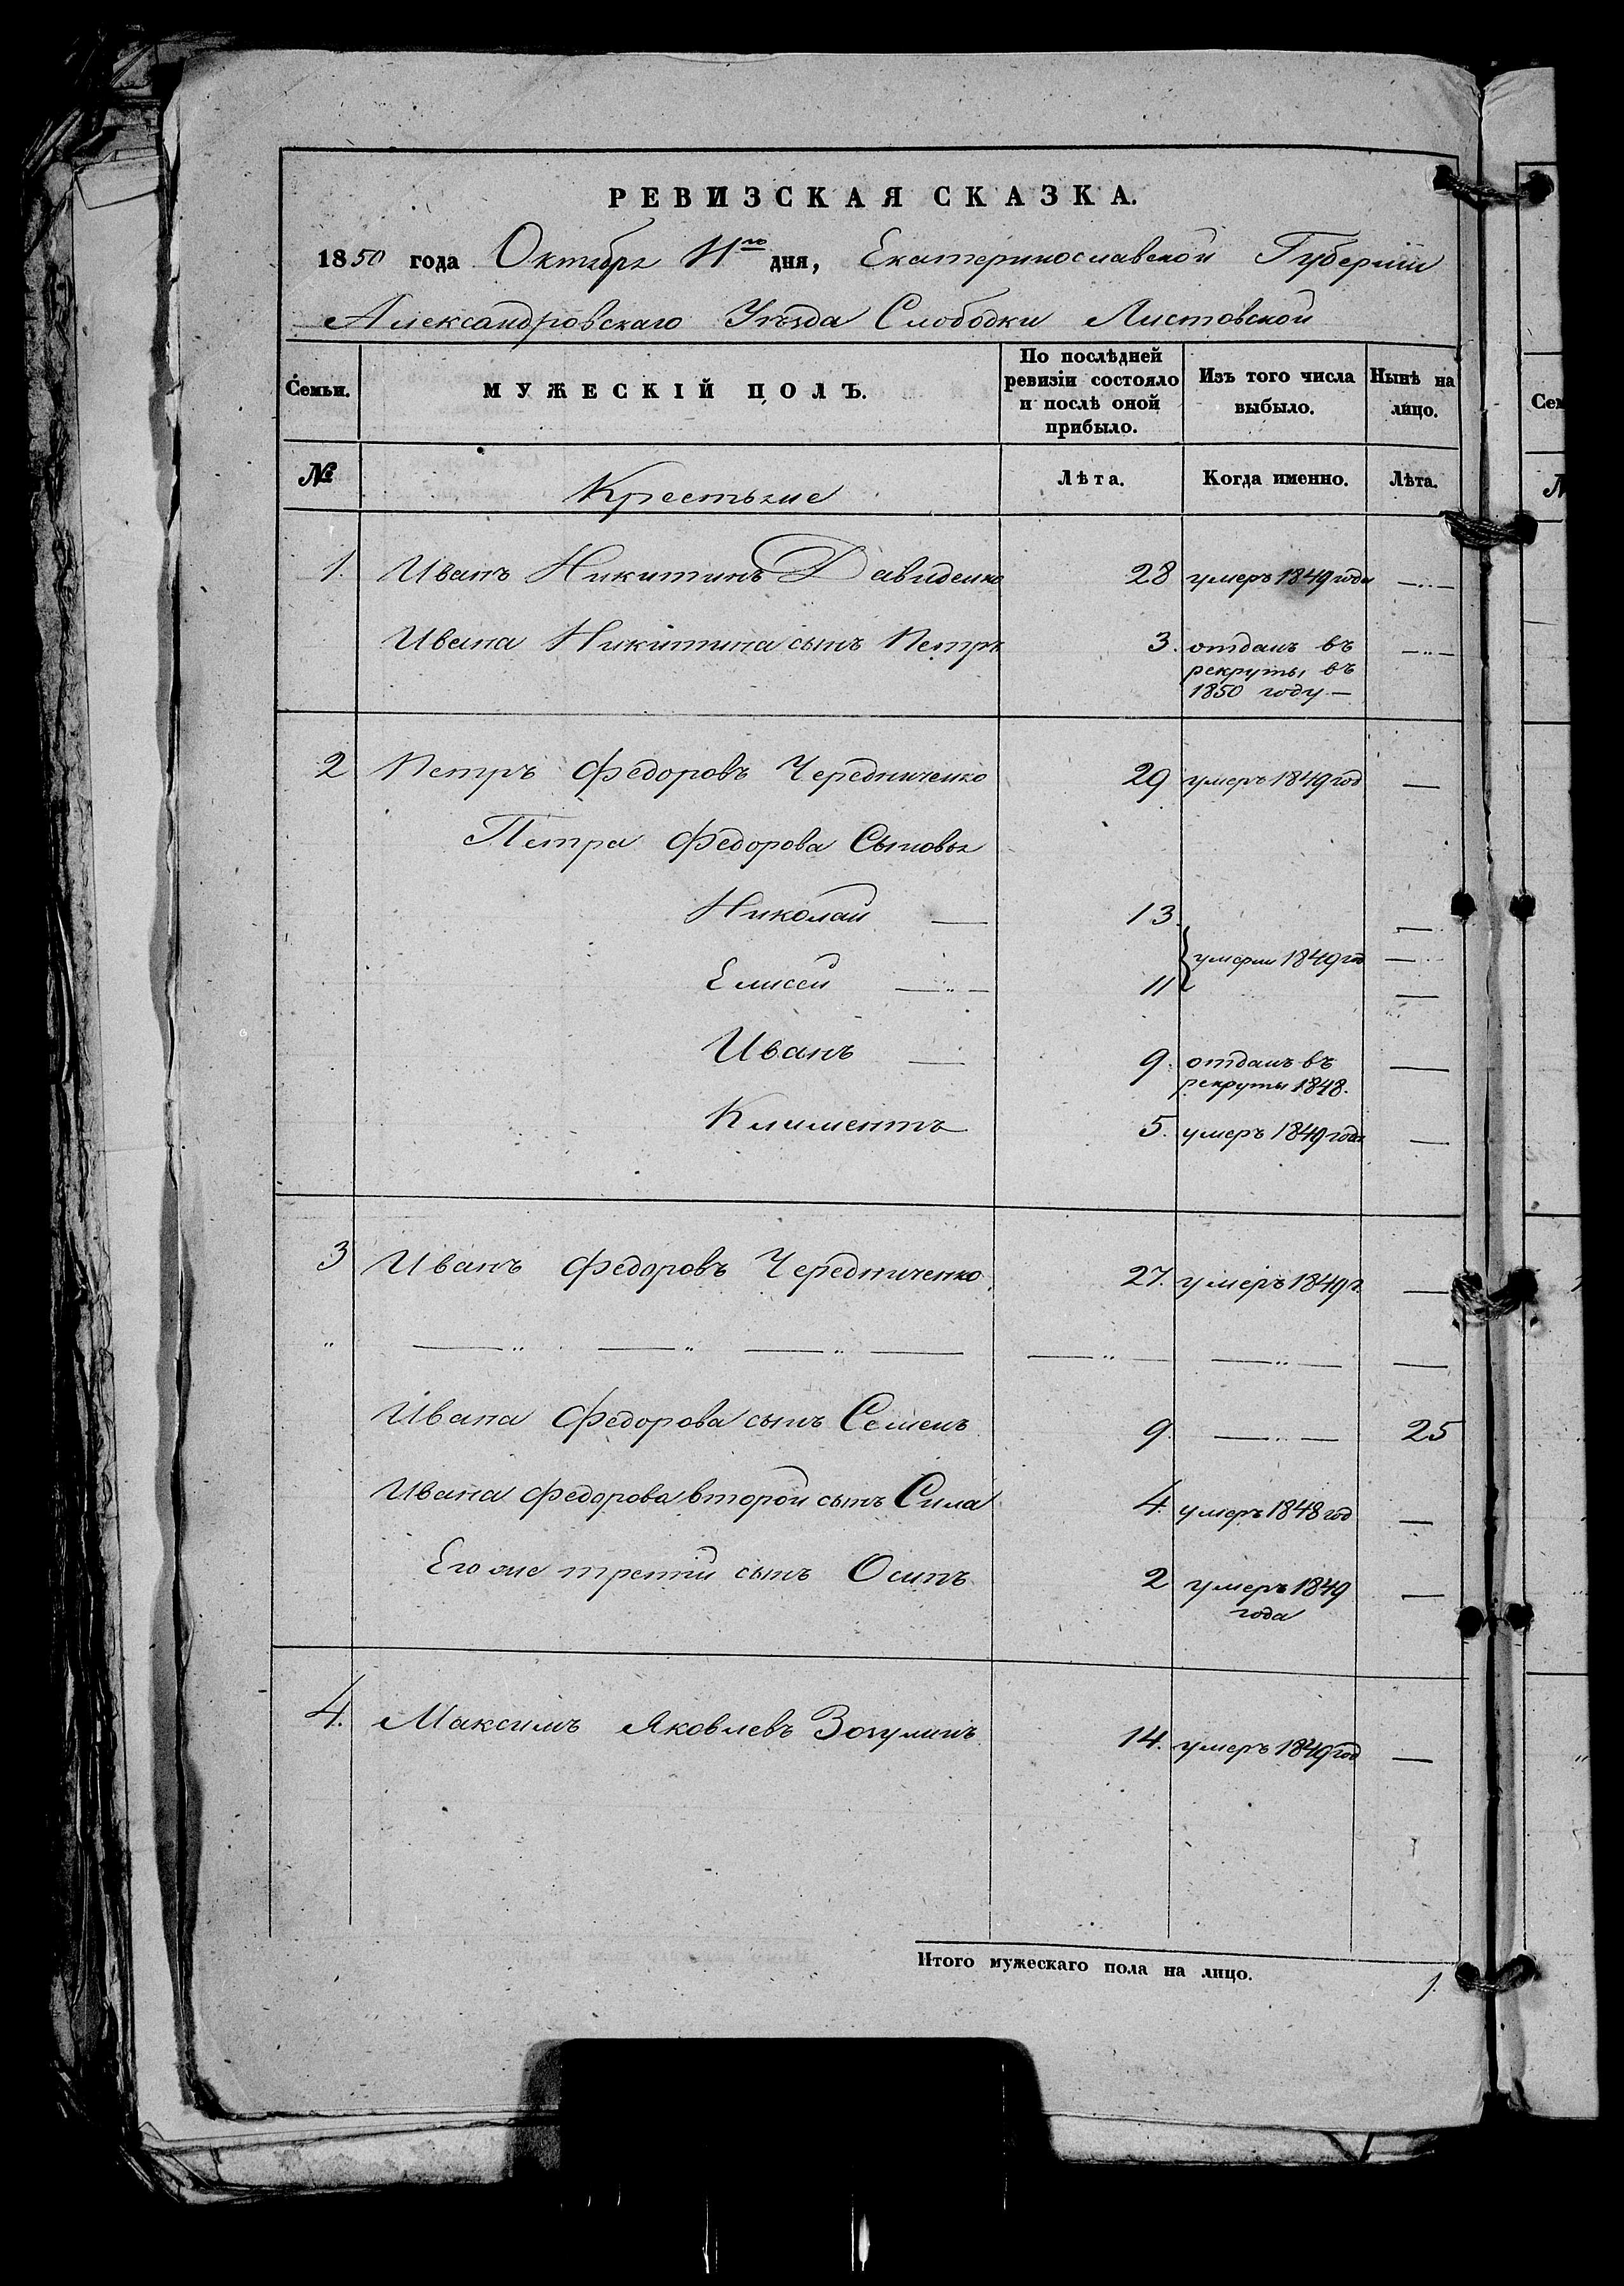 РЕВИЗСКАЯ СКАЗКА.
1850 года Октября 11го дня, Екатеринославской Губерніи
Александровскаго Уѣзда Слободки Листовской
Семьи.
МУЖЕСКІЙ ПОЛЪ.
По послѣдней
ревизіи состояло
и послѣ оной
прибыло.
Изъ того числа
выбыло.
Нынѣ на
лицо.
№
Крестьяне
Лѣта.
Когда именно.
Лѣта.
1. Иванъ Никитинъ Давиденко 28 умеръ 1849 года —„—
Ивана Никитина сынъ Петръ 3. отданъ въ —„—
рекруты въ
1850 году —
2 Петръ Федоровъ Чередниченко 29 умеръ 1849 год —
Петра Федорова Сыновья
Николай — 13. —
умерли 1849 год —
Елисей —„— 11 —
Иванъ — 9. отданъ въ —
рекруты 1848.
Климентъ 5. умеръ 1849 года —
3 Иванъ Федоровъ Чередниченко 27. умеръ 1849 г. —
„ —„ —„ —„ — —„— —„— —
Ивана Федорова сынъ Семенъ 9. —„— 25
Ивана Федорова второй сынъ Сила 4. умеръ 1848 год —
Его же третій сынъ Осипъ 2 умеръ 1849 —
года
4. Максимъ Яковлевъ Зозулинъ 14. умеръ 1849 год —
Итого мужескаго пола на лицо. 1.
Сем